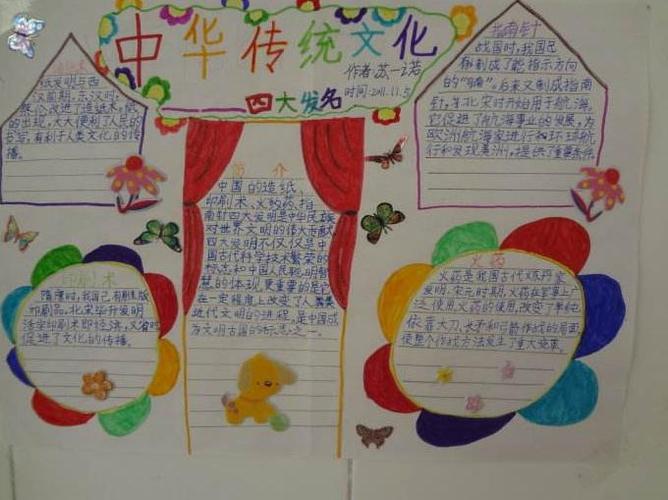 中华传统文化
作者:苏一诺
时间:2011.11.5
四大发名
纸发明与西
汉前期,东汉时,
的出现,大大便利了人民的
书写,有利于人类文化的传
播。
指南针
战国时,我国已
制成了能指示方向
的"司南",后来又制成指南
针,北宋时开始用于航海。
它促进了航海事业的发展,为
欧洲航海家进行环球航
行和发现美洲,提供了重要条件
简介
中国的造纸、
印刷术、火药、指
南针四大发明是中华民族
对世界文明的伟大贡献
四大发明不仅仅是中
国古代科学技术繁荣的
标志和中国人民聪明智
慧的体现,更重要的是它
在一定程度上改变了人类
近代文明的进程,是中国成
为文明古国的标志之一。
印刷术
隋唐时,我国已有雕版
印刷品。北宋毕升发明
活字印刷术即经济,又省时
促进了文化的传播。
火药
火药是我国古代炼丹家
发明,宋元时期,火药在军事上广
泛使用,火药的使用,改变了单纯
依靠大刀、长矛和弓箭作战的局面
使整个作战方法发生了重大变革。